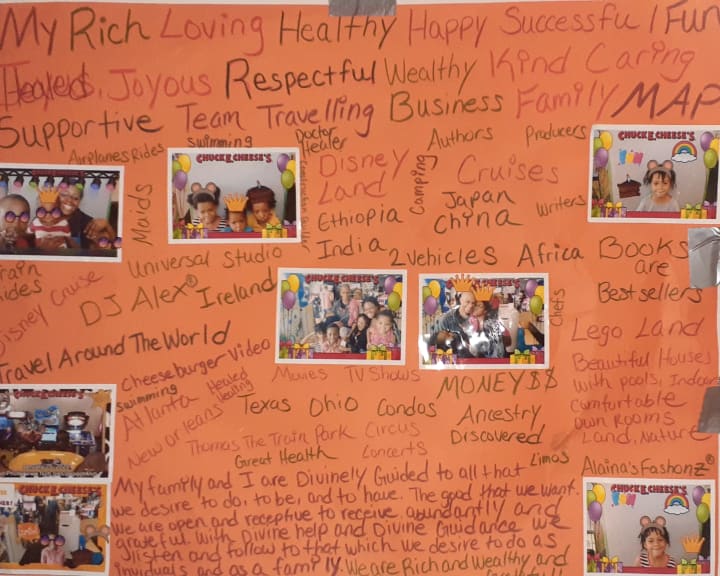 My Rich Loving Healthy Happy Successful Fun
Healed, Joyous Respectful Wealthy Kind Caring
Supportive Team Travelling Business Family MAP
Airplanes Rides
swimming
Doctor
Healer
Authors
Producers
CHUCK E. CHEESE'S
CHUCK E. CHEESE'S
Maids
Disney
Land
Camping
Cruises
Ethiopia
Japan
China
Writers
India
Train
Rides
Universal Studio
2 Vehicles
Africa
Books
are
Best sellers
Disney Cruise
DJ Alex® Ireland
CHUCK E. CHEESE'S
CHUCK E. CHEESE'S
Chefs
Travel Around The World
Lego Land
Cheeseburger Video
Movies
TV Shows
MONEY $$
Beautiful Houses
with pools, Indoor
Comfortable
own Rooms
Land, Nature
swimming
Atlanta
Healed
Healing
New Orleans
Texas
Ohio
Condos
Ancestry
Discovered
Thomas The Train Park
Circus
Great Health
Concerts
Limos
Alaina's Fashonz®
CHUCK E. CHEESE'S
CHUCK E. CHEESE'S
My family and I are Divinely Guided to all that
we desire to do, to be, and to have. The good that we want.
we are open and receptive to receive abundantly and
grateful. with Divine help and Divine Guidance we
listen and follow to that which we desire to do as
inviduals and as a family. We are Rich and Wealthy and